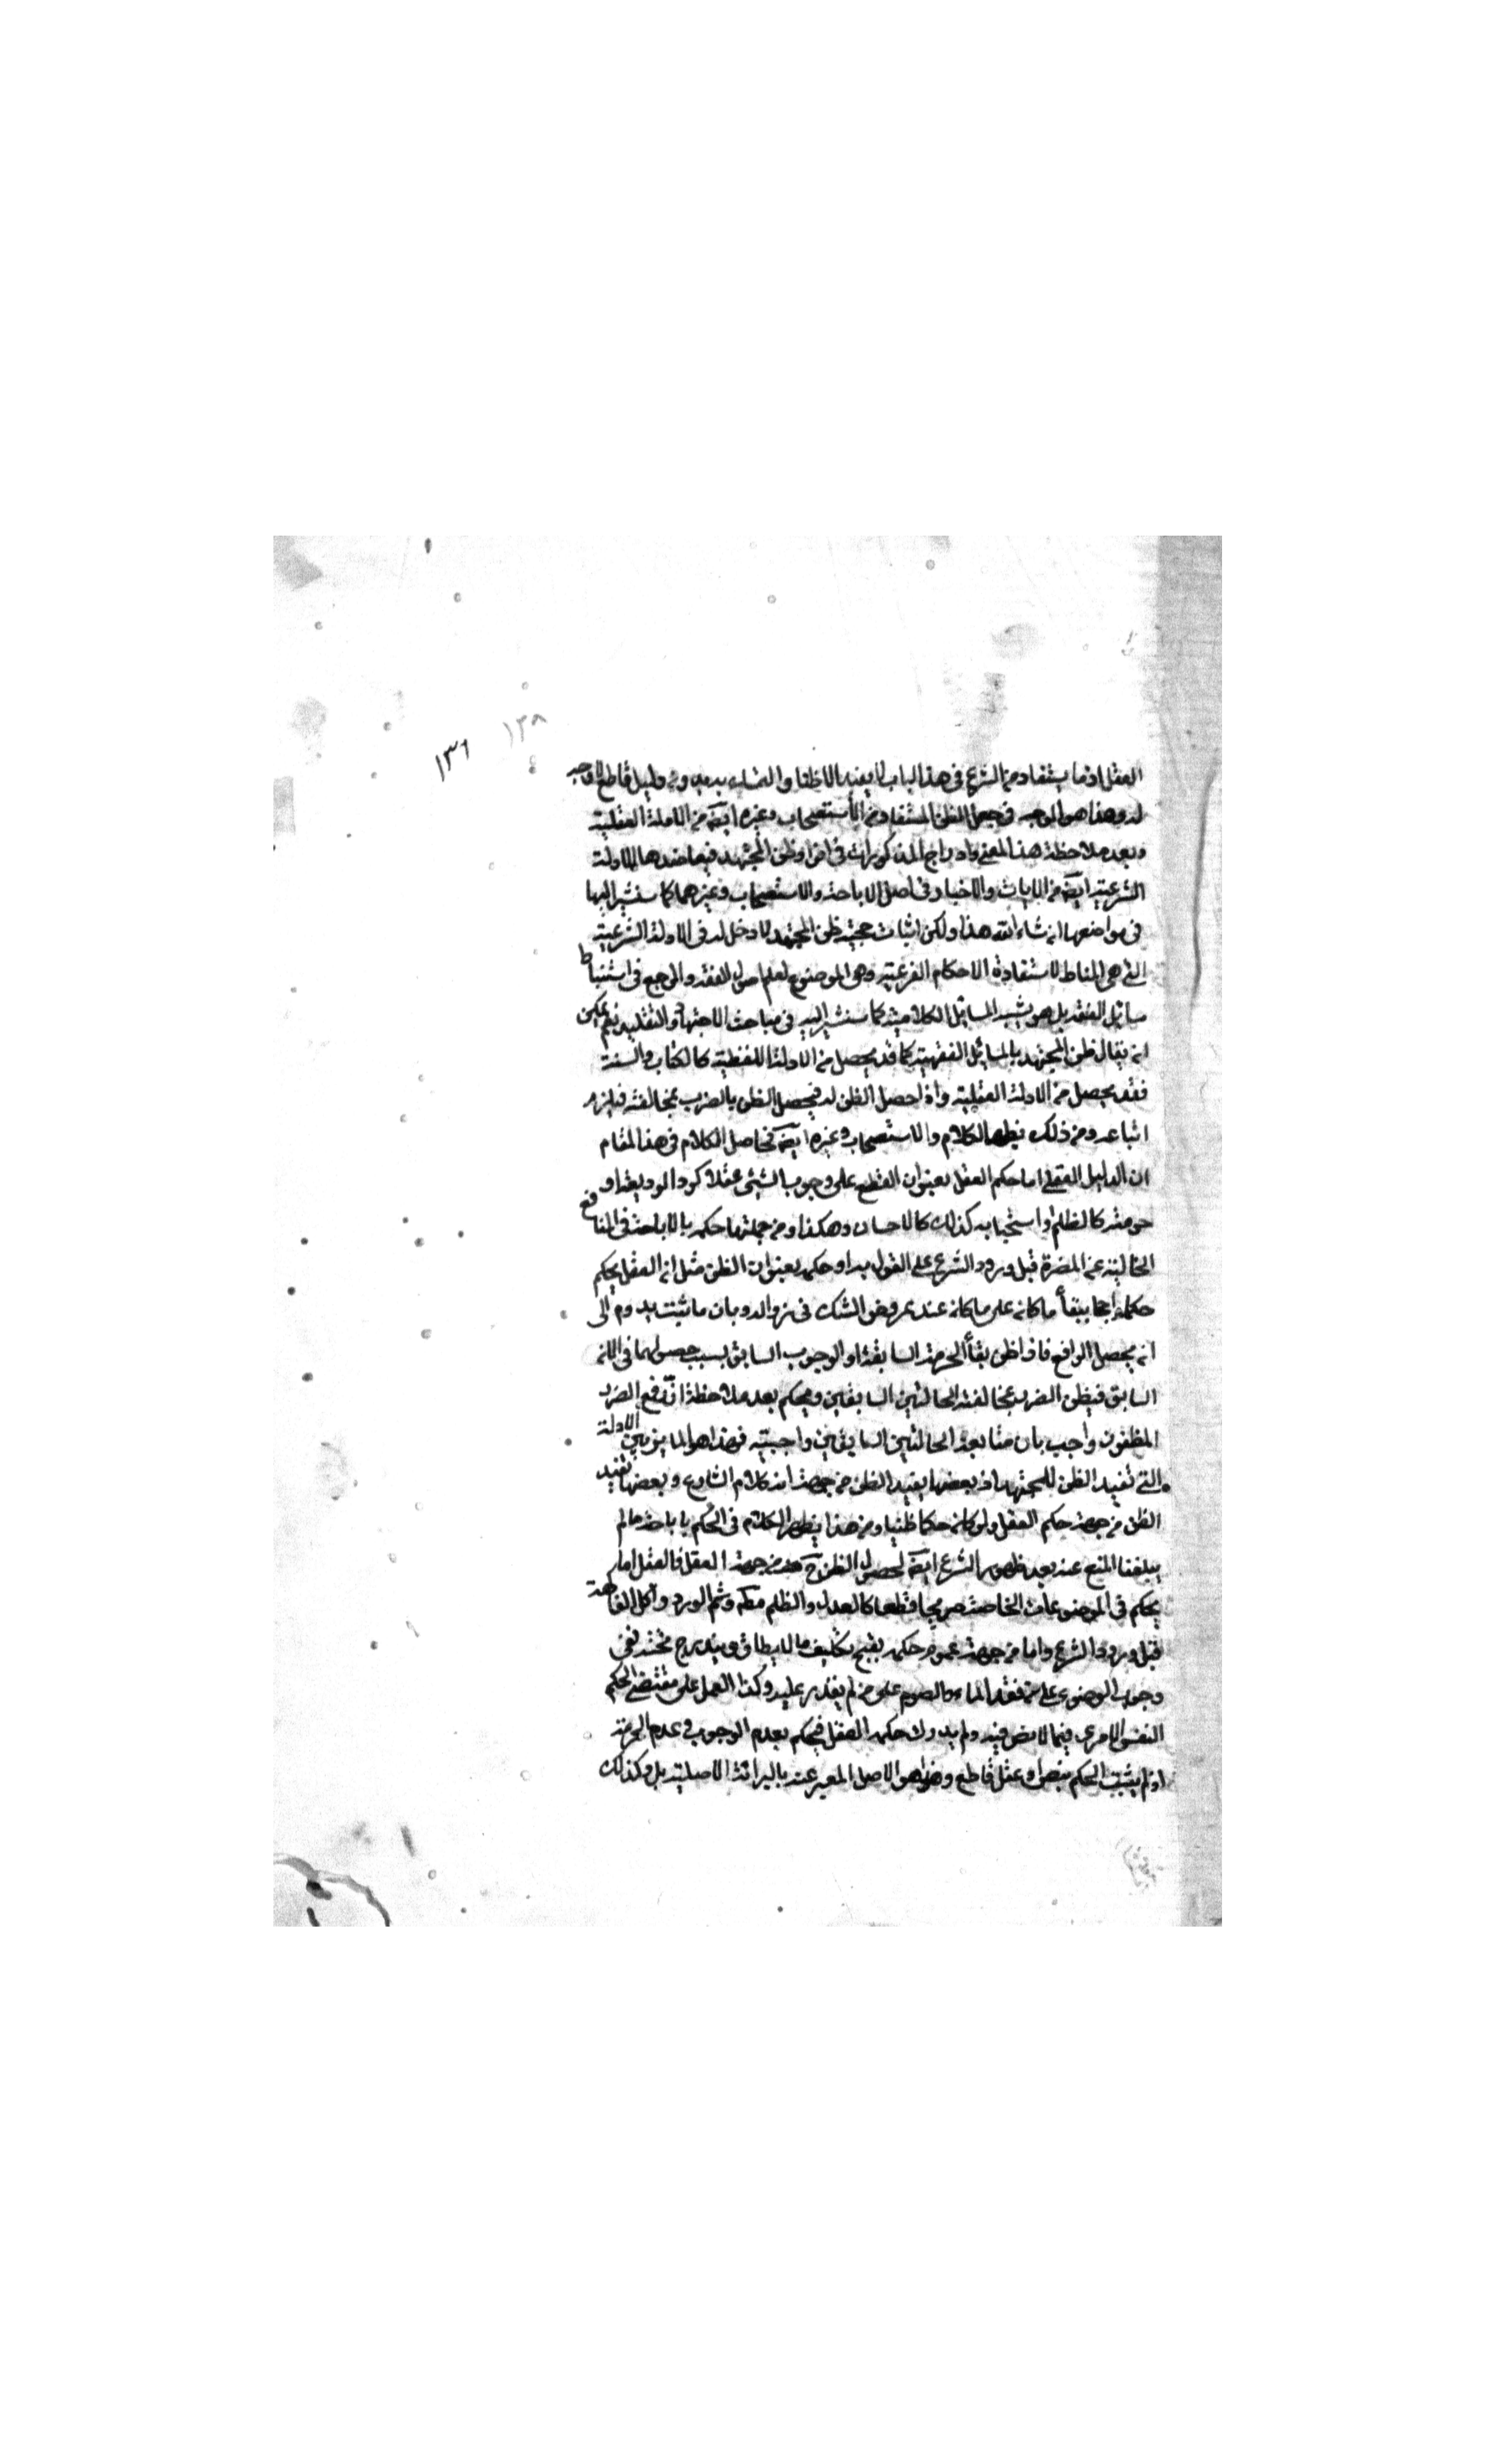 ١٣٨
١٣٦
العقل اذ ما يستفاد من الشرع فى هذا الباب لا يفيد الا ظنا والتمسك به بدون دليل قاطع لا وجه
له وهذا هو الوجه فى جعل الظن المستفاد من الاستصحاب وغيره ايضا من الادلة العقلية
وبعد ملاحظة هذا المعنى وادراج المذكورات فى افراد ظن المجتهد فيعاضدها الادلة
الشرعية ايضا من الايات والاخبار فى اصل الاباحة والاستصحاب وغيرهما كما سنشير اليها
فى مواضعها انشاء الله هذا ولكن اثبات حجية ظن المجتهد لا دخل له فى الادلة الشرعية
التى هى المناط لاستفادة الاحكام الفرعية وهى الموضوع لعلم اصول الفقه والمرجع فى استنباط
مسائل الفقه بل هو يشبه المسائل الكلامية كما سنشير اليه فى مباحث الاجتهاد والتقليد نعم يمكن
ان يقال ظن المجتهد بالمسائل الفقهية كما قد يحصل من الادلة اللفظية كالكتاب والسنة
فقد يحصل من الادلة العقلية واذا حصل الظن له فيحصل الظن بالضرر بمخالفته فيلزم
اتباعه ومن ذلك يظهر الكلام والاستصحاب وغيره ايضا فحاصل الكلام فى هذا المقام
ان الدليل العقلى اما حكم العقل بعنوان القطع على وجوب الشئ عقلا كرد الوديعة او
حرمته كالظلم او استحبابه كذلك كالاحسان وهكذا ومن جملتها حكمه بالاباحة فى المنافع
الخالية عن المضرة قبل ورود الشرع على القول به او حكمه بعنوان الظن مثل ان العقل يحكم
حكما راجحا ببقاء ما كان على ما كان عند عروض الشك فى زواله وبان ما ثبت يدوم الى
ان يحصل الرافع فاذا ظن بقاء الحرمة السابقة او الوجوب السابق بسبب حصولهما فى الان
السابق فيظن الضرر بمخالفته الحالتين السابقتين ويحكم بعد ملاحظة ان دفع الضرر
المظنون واجب بان متابعة الحالتين السابقتين واجبة فهذا هو المايز بين الادلة
التى تفيد الظن للمجتهد اذ بعضها يفيد الظن من جهة انه كلام الشارع وبعضها يفيد
الظن من جهة حكم العقل ولو كان حكما ظنيا ومن هذا يظهر الكلام فى الحكم باباحة ما لم
يبلغنا المنع عنه بعد ظهور الشرع ايضا لحصول الظن ح من جهة العقل فالعقل اما
يحكم فى الموضوعات الخاصة صريحا قطعا كالعدل والظلم مط وشم الورد واكل الفاكهة
قبل ورود الشرع واما من جهة عموم حكمه بقبح تكليف ما لا يطاق ويندرج تحته نفى
وجوب الوضوء على من فقد الماء والصوم على من لم يقدر عليه وكذا العمل على مقتضى الحكم
النفس الامرى فيما لا نص فيه ولم يدرك حكمه العقل فيحكم بعدم الوجوب وعدم الحرمة
اذ لم يثبت الحكم بنص او عقل قاطع وهذا هو الاصل المعبر عنه بالبرائة الاصلية بل وكذلك